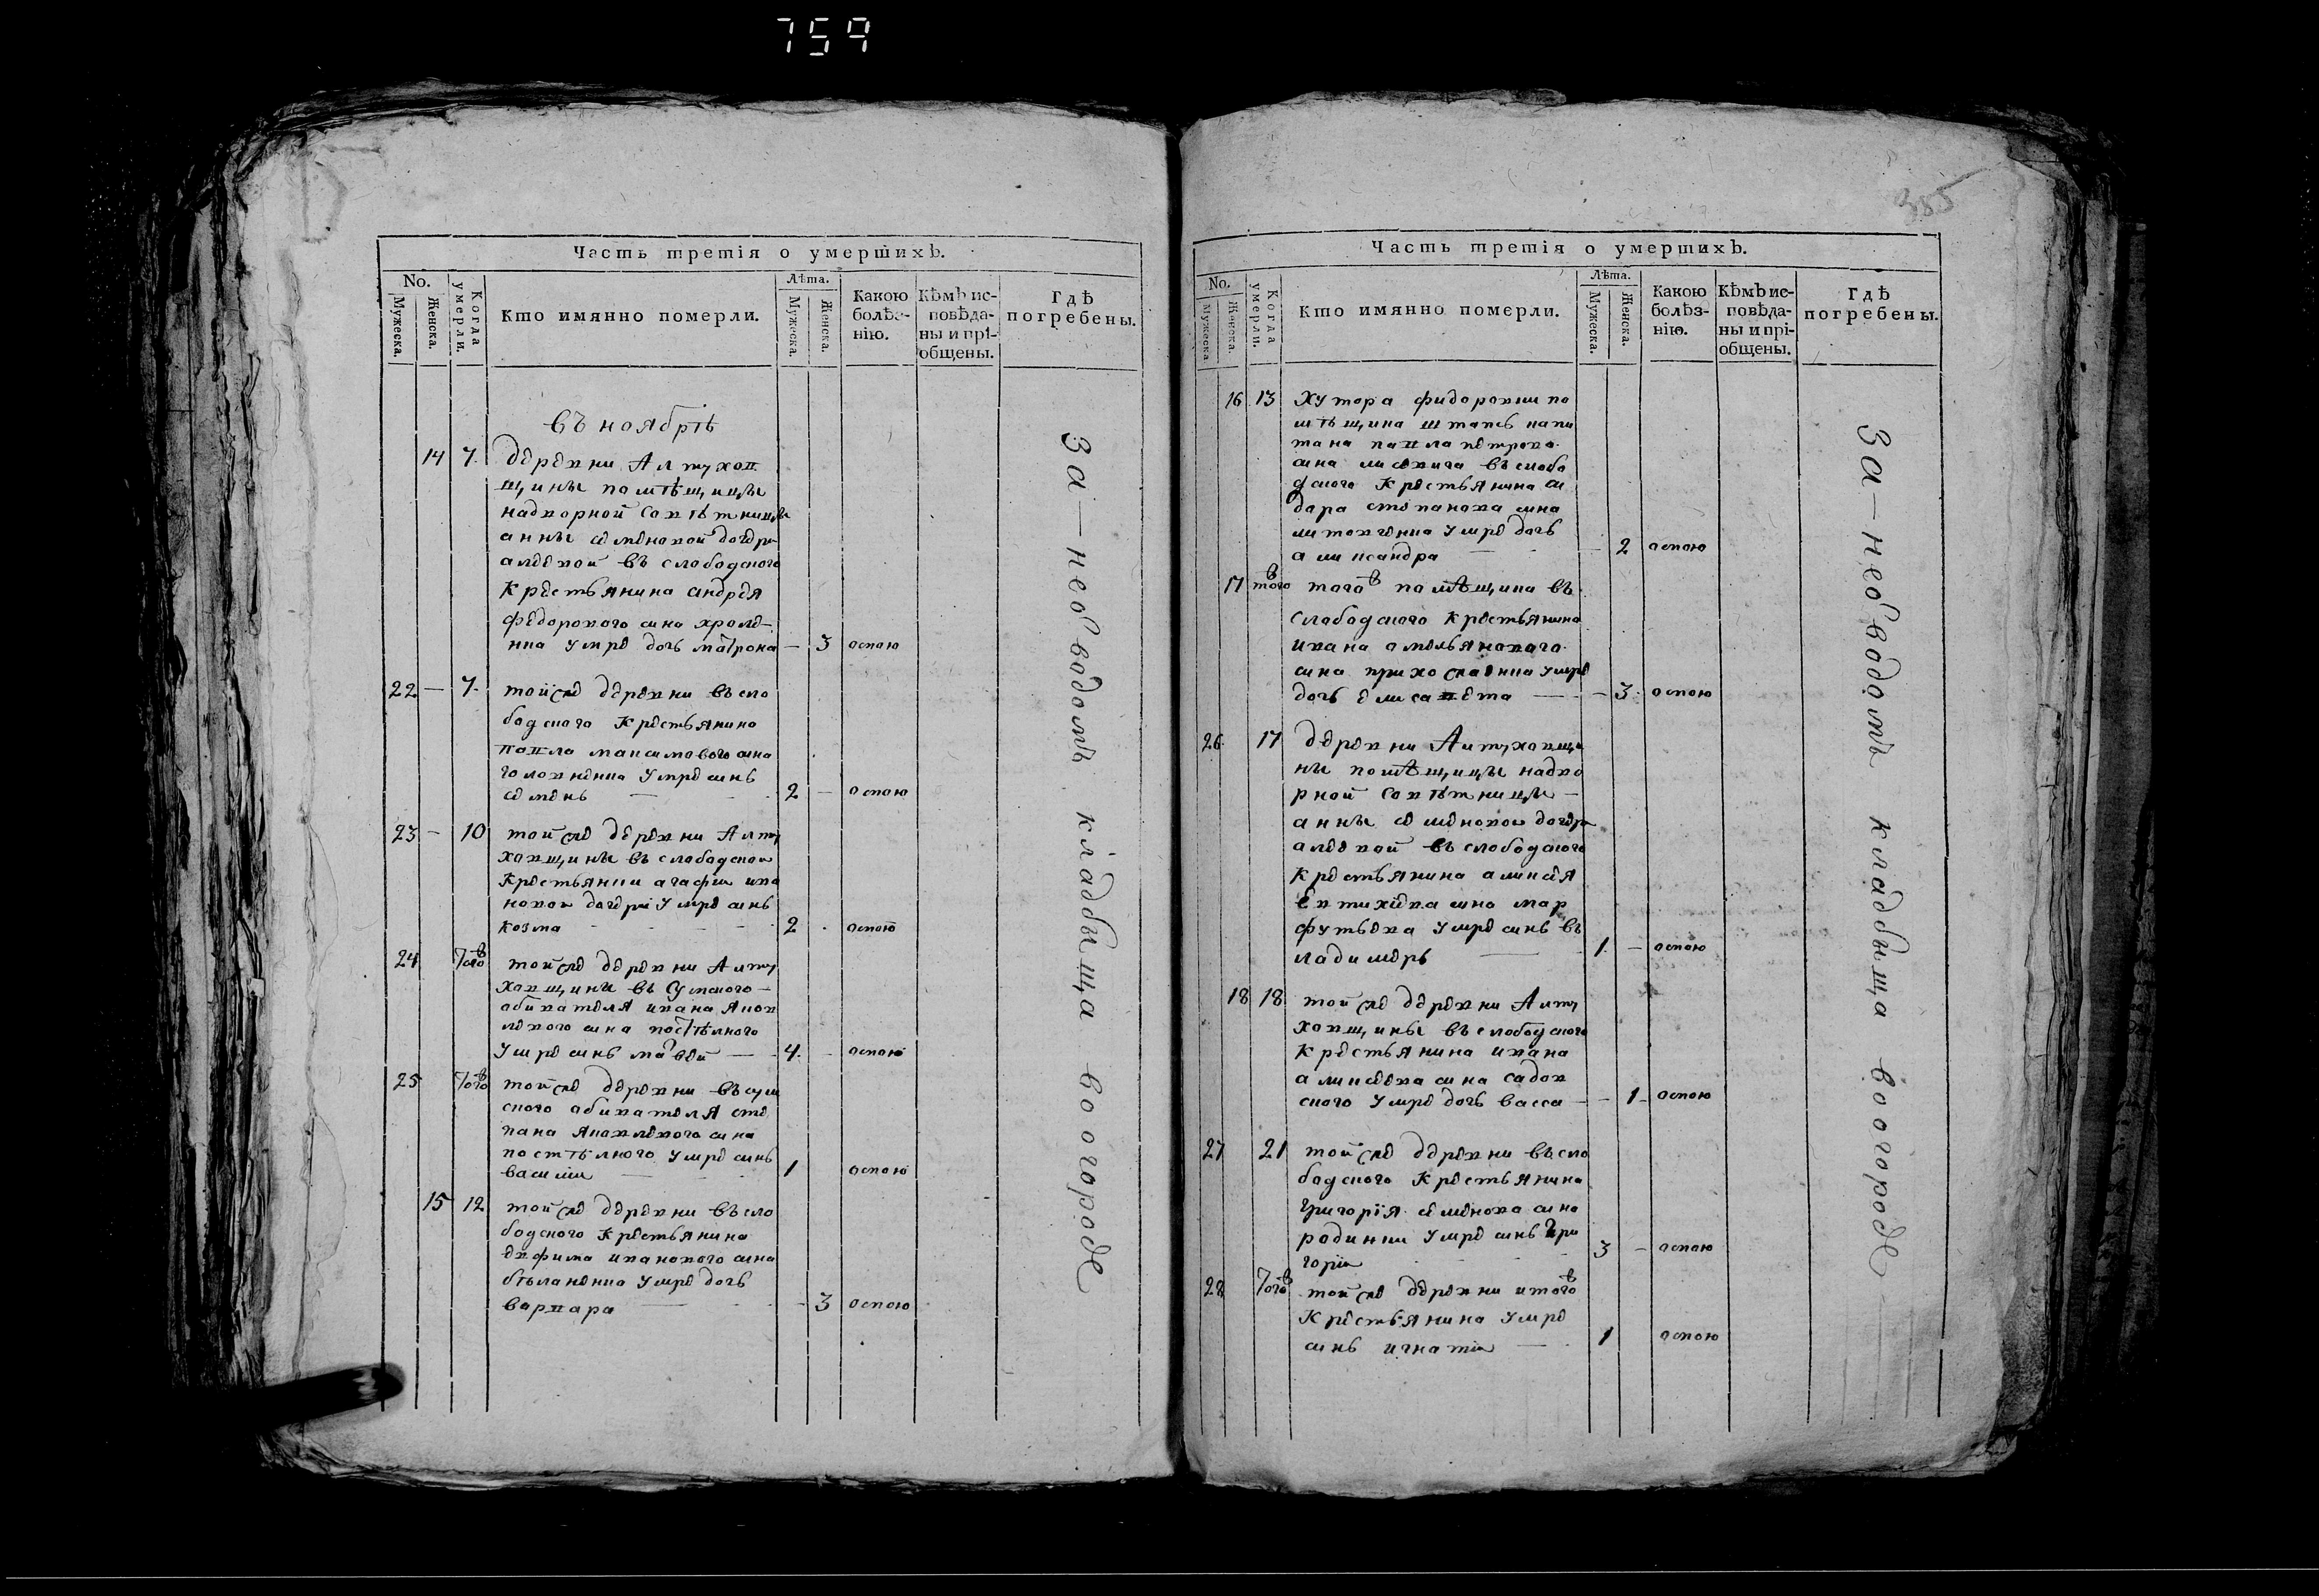 759
Часть третія о умершихъ.
No.
Мужеска.
Женска.
Когда умерли.
Кто имянно померли.
Лѣта.
Мужеска.
Женска.
Какою болѣз-
нію.
Кѣмъ ис-
повѣда-
ны и прі-
общены.
Гдѣ
погребены.
въ ноябрѣ
14 7. деревни Алтухов
щины помѣщицы
надворной совѣтницы
анны семеновой дочери
алеевой въ слободского
крестьянина андрея
федорового сина хроме-
нка умре дочь матрона — 3 оспою
22 — 7. той же деревни въ сло
бодского крестьянина
павла максимового сина
головненка умре синъ
семенъ — 2 — оспою
23 — 10 той же деревни Алту
ховщины въ слободской
крестьянки агафіи ива
новой дочери умре синъ
козма 2 оспою
24 того въ той же деревни Алту
ховщины въ сумского
обивателя ивана яков
левого сина постѣлного
умре синъ матвей — 4. оспою
25 того въ той же деревни въ сум
ского обивателя сте
пана яковлевого сина
постѣлного умре синъ
василій 1 оспою
15 12 той же деревни въ сло
бодского крестьянина
евфима иванового сина
бѣланенка умре дочь
варвара — 3 оспою
За-необводомъ кладбыща во огороде
385
Часть третія о умершихъ.
No.
Мужеска.
Женска.
Когда умерли.
Кто имянно померли.
Лѣта.
Мужеска.
Женска.
Какою
болѣз-
нію.
Кѣмъ ис-
повѣда-
ны и прі-
общены.
Гдѣ
погребены.
16 13 хутора фидоровки по
мѣщика штапсъ капи
тана павла петрова
сина лисевича въ слобо
дского крестьянина си
дора степанова сина
литовченка умре дочь
александра — 2 оспою
17 того въ того въ помѣщика въ
слободского крестьянина
ивана омельянового
сина умре
дочь елисавета — — 3. оспою
26. 17 деревни Алтуховщи
ны помѣщицы надво
рной совѣтницы —
анны семеновой дочери
алеевой въ слободского
крестьянина алексея
евтихіева сина мар
футьева умре синъ въ
ладимеръ — 1. — оспою
18 18 той же деревни Алту
ховщины въ слободского
крестьянина ивана
алексеева сина садов
ского умре дочь васса — — 1 — оспою
27 21 той же деревни въ сло
бодского крестьянина
григорія семенова сина
родинки умре синъ гри
горій 3 — оспою
28 того въ той же деревни и того въ
крестьянина умре
синъ игнатій — 1 оспою
За-необводомъ кладбыща во огороде